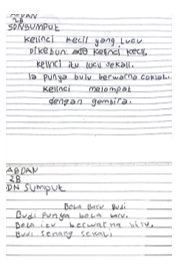 2B
SDN SUMPUT
Kelinci kecil yang Lucu
Di kebun ada kelinci kecil.
kelinci itu lucu sekali.
Ia punya bulu berwarna coklat.
Kelinci melompat
dengan gembira.
ABDAN
2B
DN Sumput
Bola Baru Budi
Budi Punya bola baru.
Bola itu berwarna
Budi Senang Sekali.